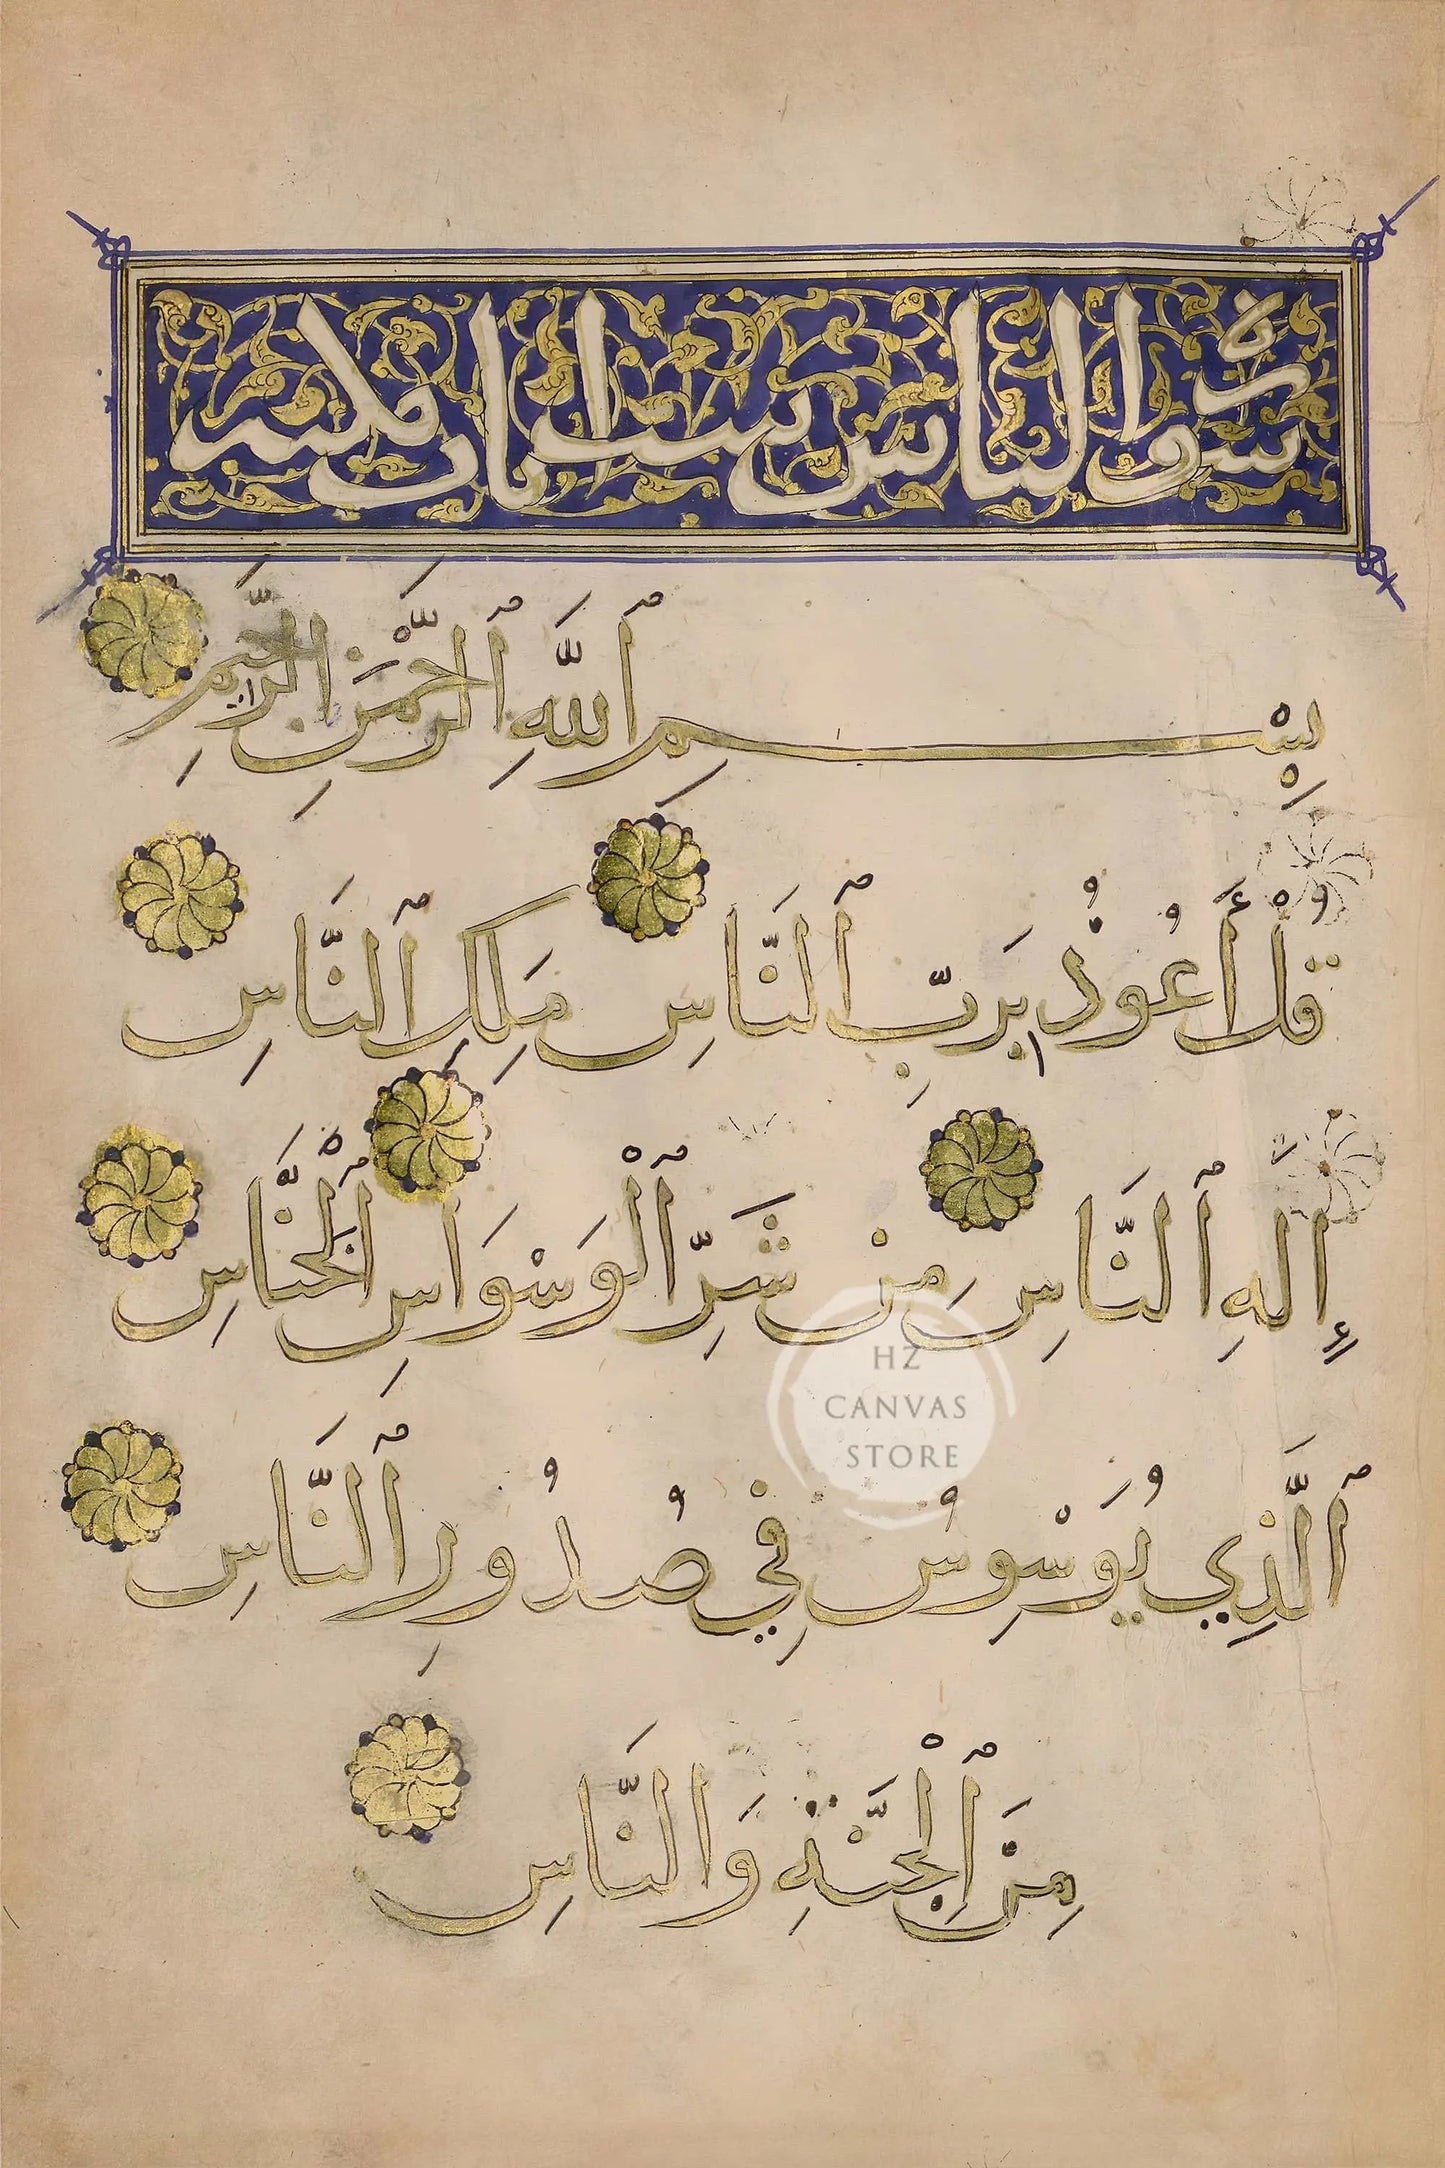 سورة الناس ست ايات مكية
بِسْمِ ٱللَّهِ ٱلرَّحْمَٰنِ ٱلرَّحِيمِ
قُلْ أَعُوذُ بِرَبِّ ٱلنَّاسِ مَلِكِ ٱلنَّاسِ
إِلَٰهِ ٱلنَّاسِ مِن شَرِّ ٱلْوَسْوَاسِ ٱلْخَنَّاسِ
ٱلَّذِي يُوَسْوِسُ فِي صُدُورِ ٱلنَّاسِ
مِنَ ٱلْجِنَّةِ وَٱلنَّاسِ
HZ
CANVAS
STORE